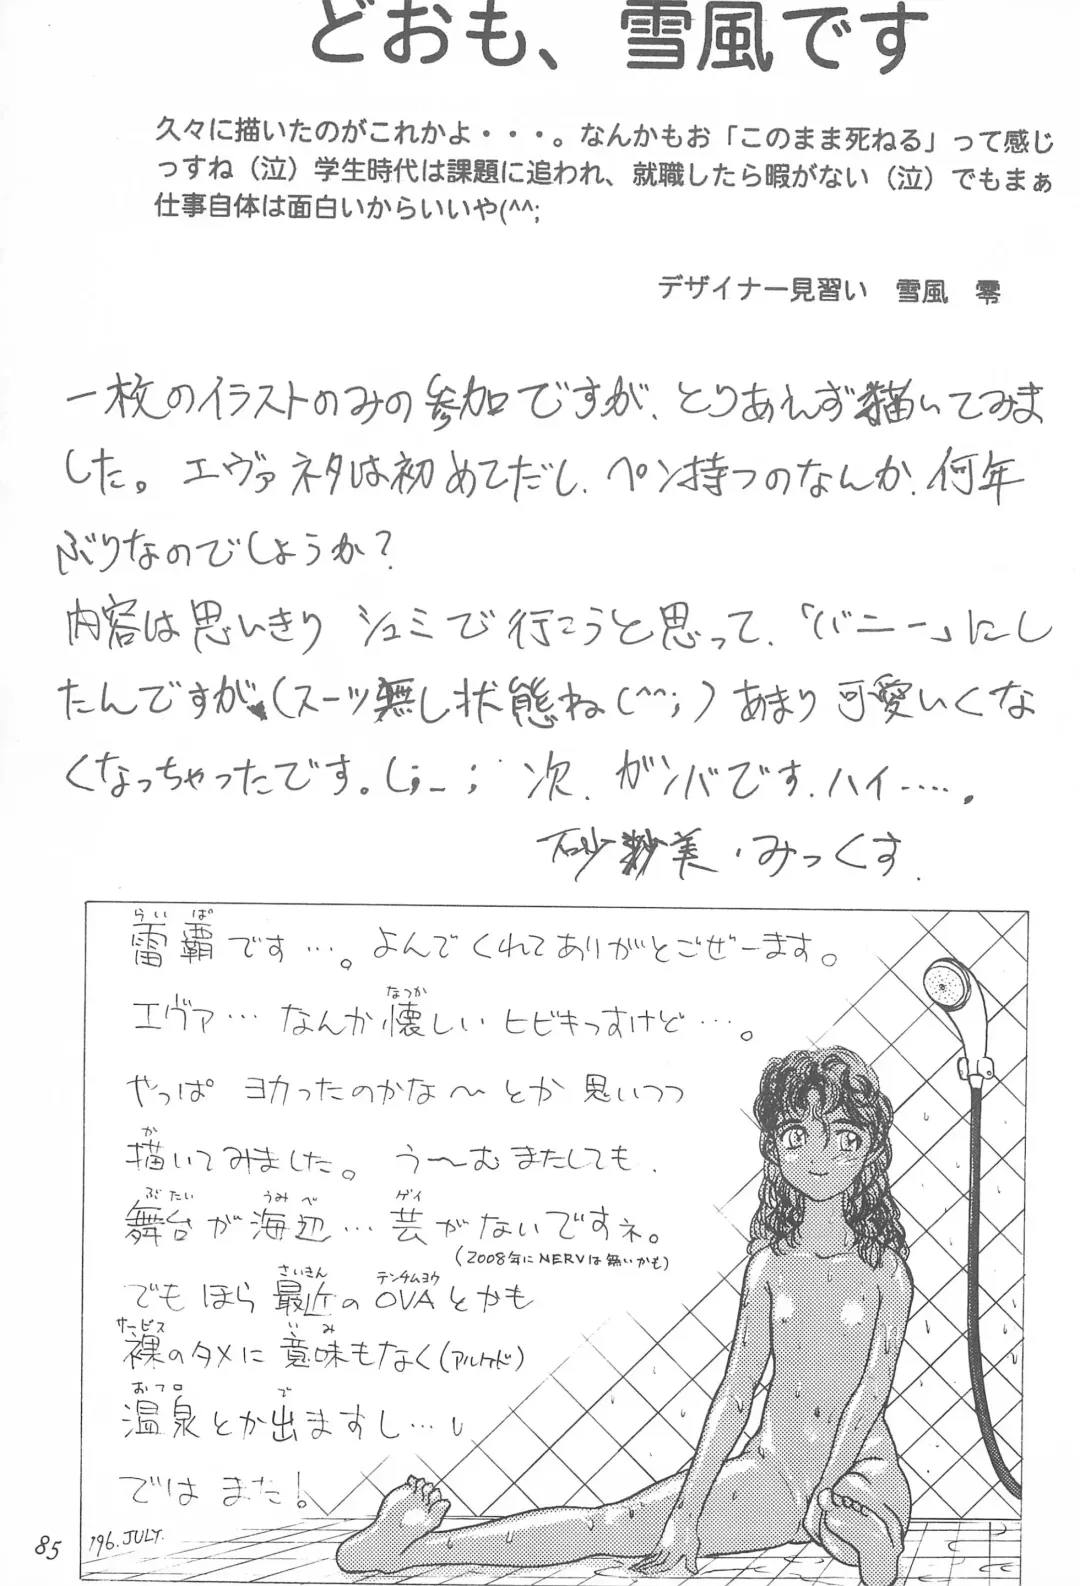 どおも、雪風です
久々に描いたのがこれかよ・・・。なんかもお「このまま死ねる」って感じ
っすね（泣）学生時代は課題に追われ、就職したら暇がない（泣）でもまぁ
仕事自体は面白いからいいや(^^;
デザイナー見習い　雪風　零
一枚のイラストのみの参加ですが、とりあえず描いてみま
した。エヴァネタは初めてだし、ペン持つのなんか、何年
ぶりなのでしょうか？
内容は思いきりシュミで行こうと思って、「バニー」にし
たんですが、(スーツ無し状態ね(^^;)あまり可愛いくな
くなっちゃったです。(;_;　次、ガンバです、ハイ……。
砂紗美・みっくす.
らい ぱ
雷覇です…。よんでくれてありがとごぜーます。
なつか
エヴァ…なんか懐しいヒビキっすけど…。
やっぱ ヨカったのかな〜とか思いつつ
か
描いてみました。う〜むまたしても、
ぶたい うみべ ゲイ
舞台が海辺…芸がないですネ。
(2008年にNERVは無いかも)
さいきん テンチムヨウ
でもほら最近のOVAとかも
サービス いみ
裸のタメに意味もなく(アルケド)
おフロ で
温泉とか出ますし…
ではまた!
85
'96.JULY.